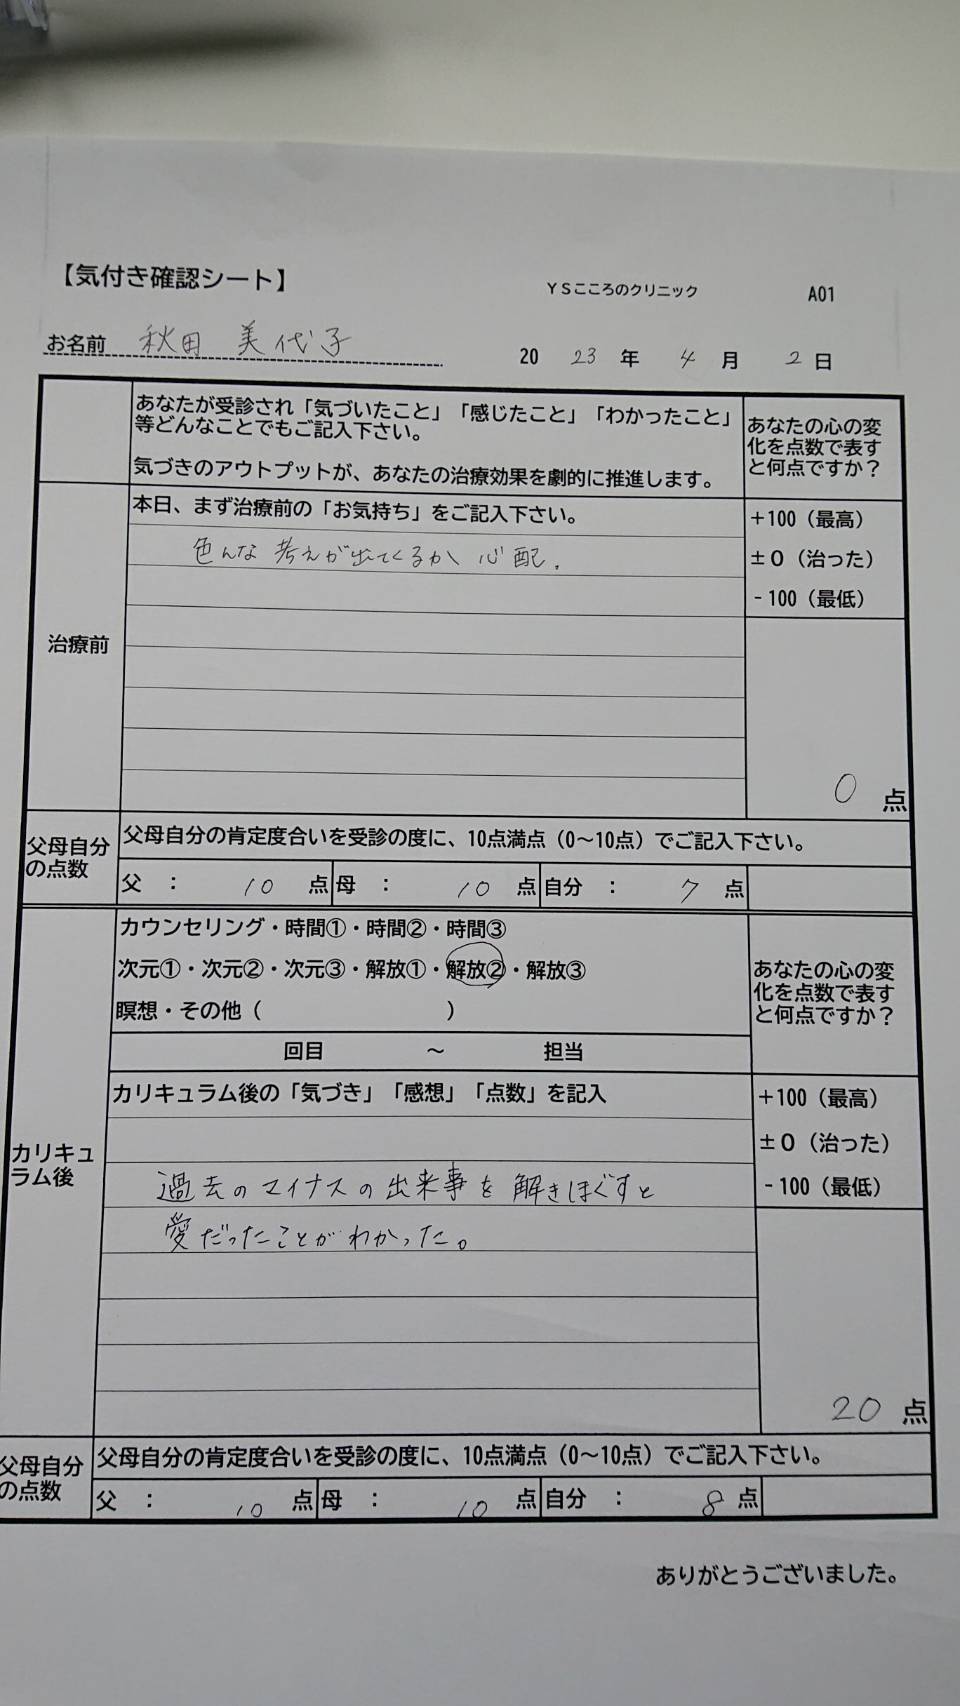 【気付き確認シート】
YSこころのクリニック
A01
お名前 秋田 美代子
20 23 年 4 月 2 日
あなたが受診され「気づいたこと」「感じたこと」「わかったこと」
等どんなことでもご記入下さい。
気づきのアウトプットが、あなたの治療効果を劇的に推進します。
あなたの心の変
化を点数で表す
と何点ですか？
治療前
本日、まず治療前の「お気持ち」をご記入下さい。
色んな考えが出てくるか心配.
+100（最高）
±０（治った）
-100（最低）
0 点
父母自分
の点数
父母自分の肯定度合いを受診の度に、10点満点（0～10点）でご記入下さい。
父 ： 10 点 母 ： 10 点 自分 ： 7 点
カリキュ
ラム後
カウンセリング・時間①・時間②・時間③
次元①・次元②・次元③・解放①・解放②・解放③
瞑想・その他（ ）
回目 ～ 担当
あなたの心の変
化を点数で表す
と何点ですか？
カリキュラム後の「気づき」「感想」「点数」を記入
過去のマイナスの出来事を解きほぐすと
愛だったことがわかった。
+100（最高）
±０（治った）
-100（最低）
20 点
父母自分
の点数
父母自分の肯定度合いを受診の度に、10点満点（0～10点）でご記入下さい。
父 ： 10 点 母 ： 10 点 自分 ： 8 点
ありがとうございました。